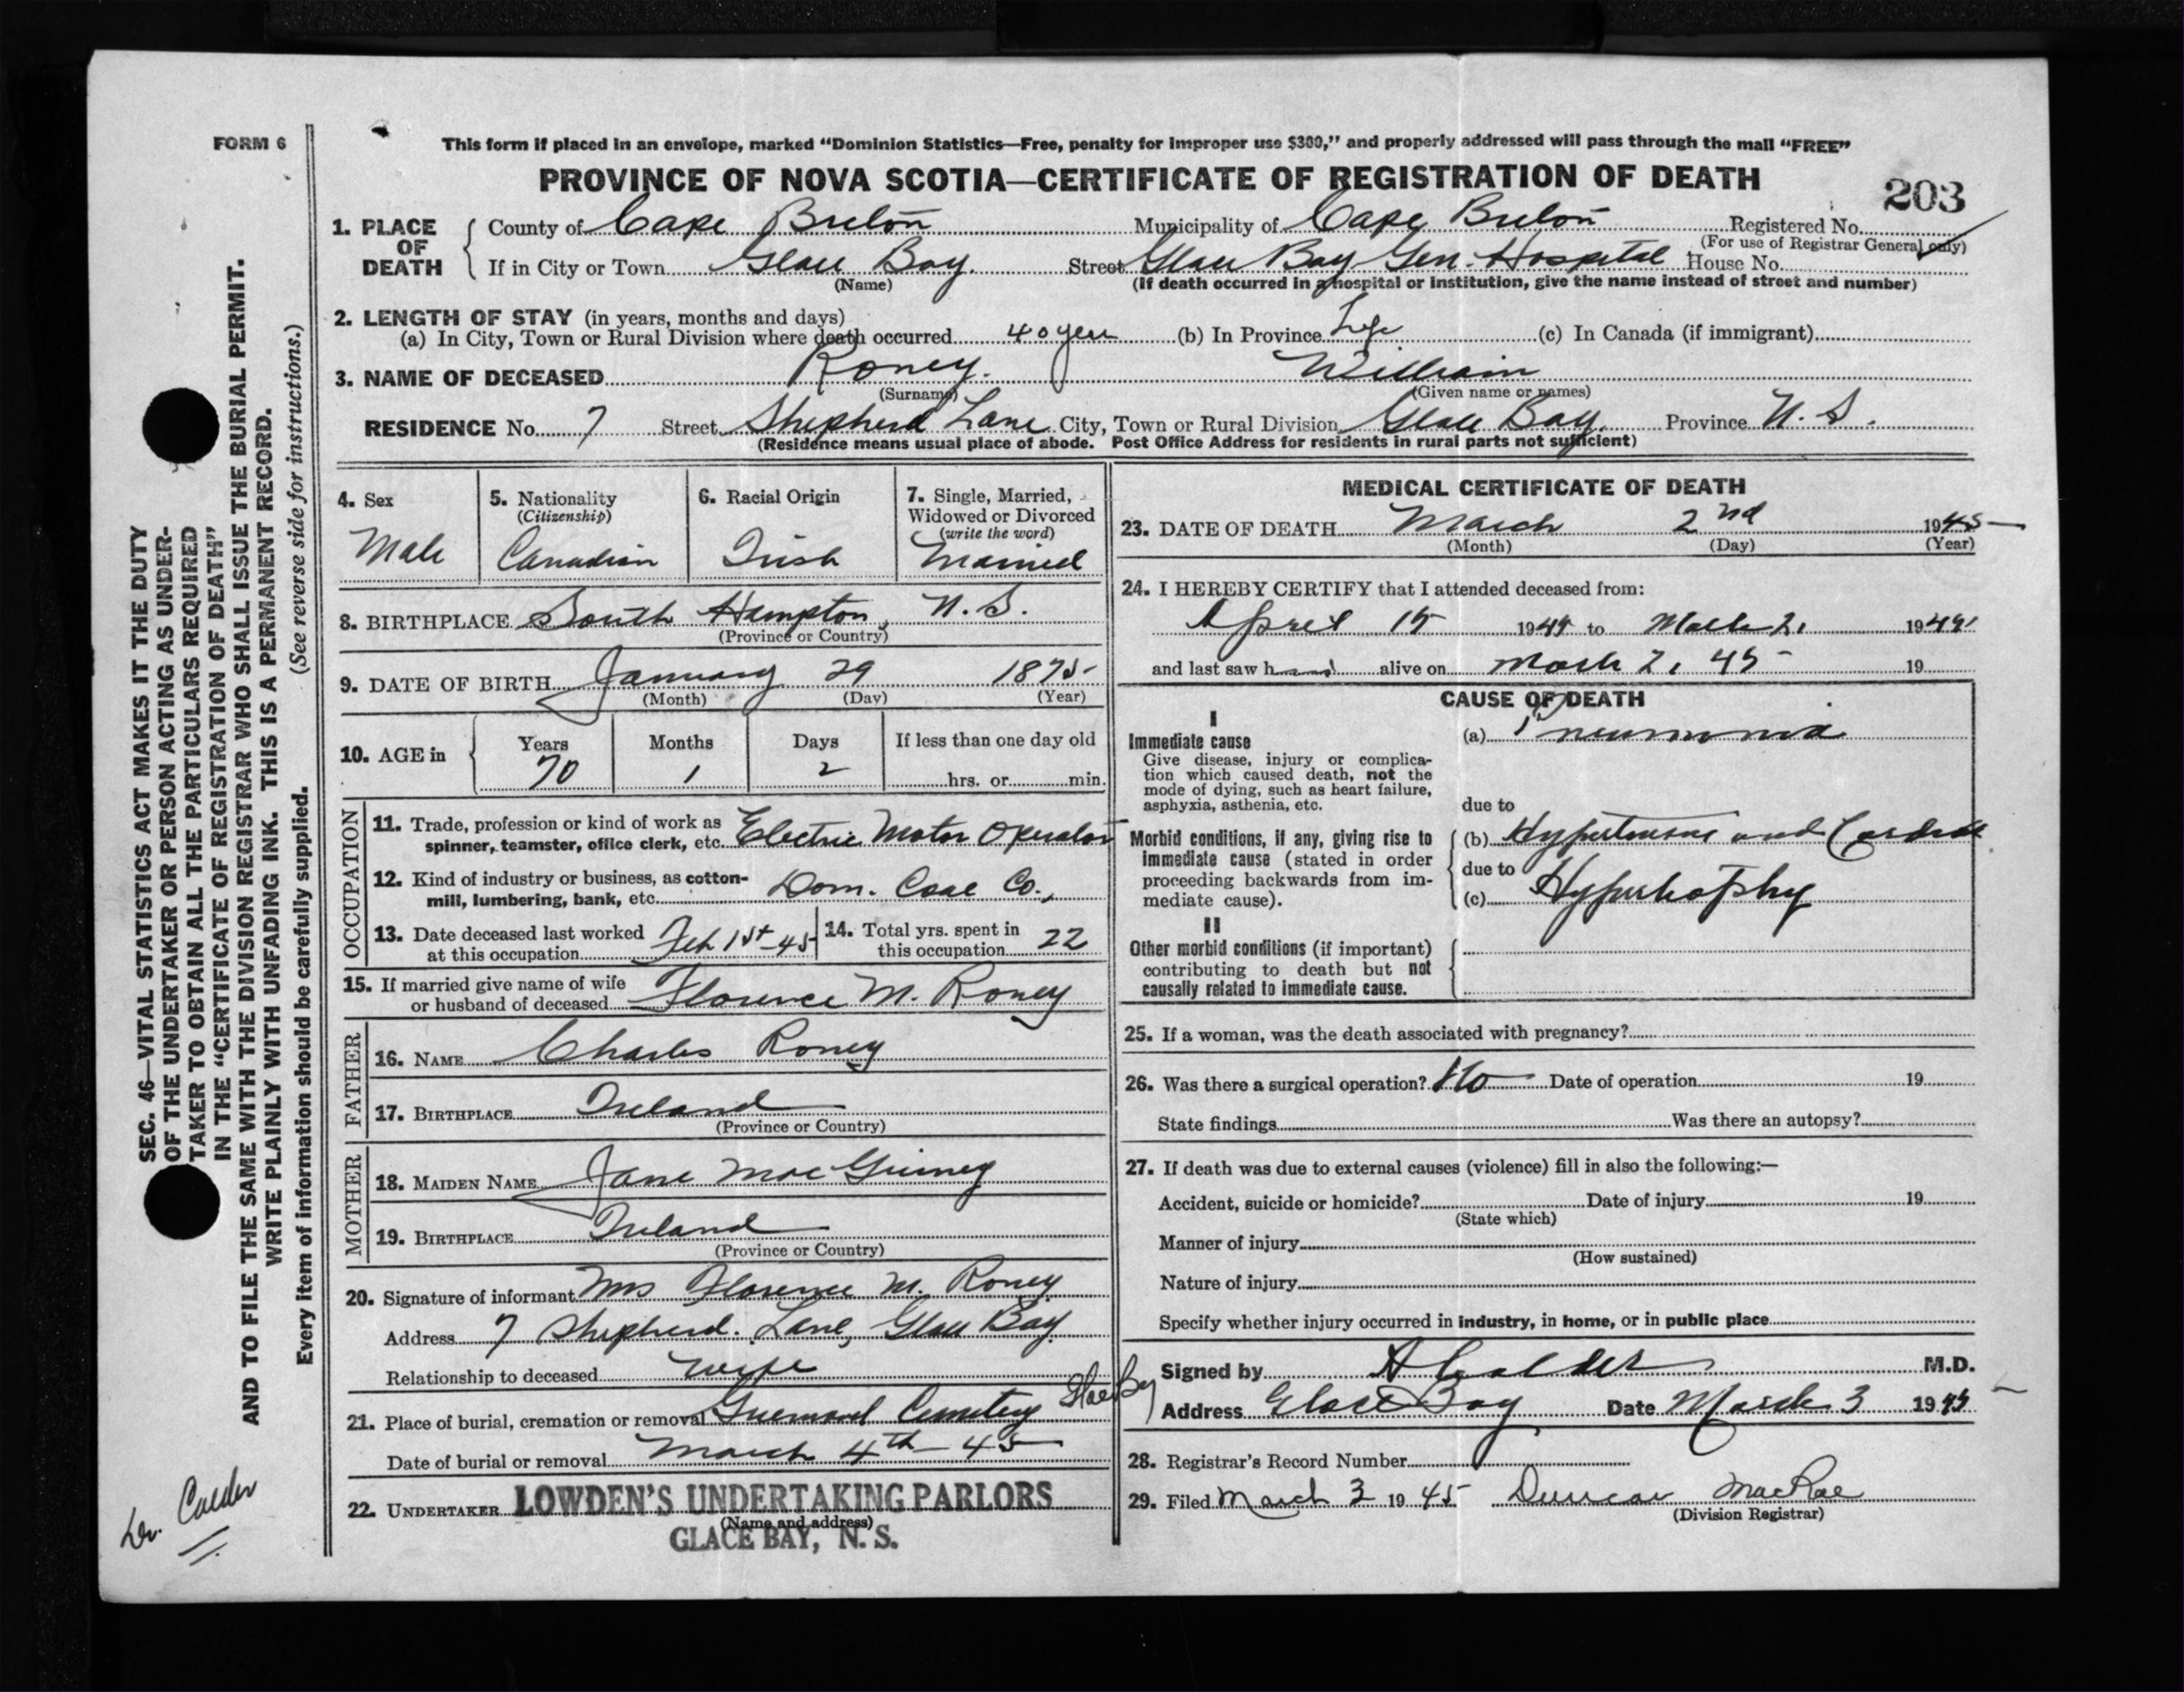 FORM 6
This form if placed in an envelope, marked "Dominion Statistics—Free, penalty for improper use $300," and properly addressed will pass through the mail "FREE"
PROVINCE OF NOVA SCOTIA—CERTIFICATE OF REGISTRATION OF DEATH
203
1. PLACE OF DEATH
County of Cape Breton Municipality of Cape Breton Registered No.
(For use of Registrar General only)
If in City or Town Glace Bay. Street Glace Bay Gen. Hospital House No.
(Name) (If death occurred in a hospital or institution, give the name instead of street and number)
2. LENGTH OF STAY (in years, months and days)
(a) In City, Town or Rural Division where death occurred 40 years (b) In Province Life (c) In Canada (if immigrant)
3. NAME OF DECEASED Roney. William
(Surname) (Given name or names)
RESIDENCE No. 7 Street Shepherd Lane City, Town or Rural Division Glace Bay. Province N. S.
(Residence means usual place of abode. Post Office Address for residents in rural parts not sufficient)
4. Sex
Male
5. Nationality
(Citizenship)
Canadian
6. Racial Origin
Irish
7. Single, Married,
Widowed or Divorced
(write the word)
Married
8. BIRTHPLACE South Hampton, N. S.
(Province or Country)
9. DATE OF BIRTH January 29 1875
(Month) (Day) (Year)
10. AGE in
Years Months Days If less than one day old
70 1 2 hrs. or min.
OCCUPATION
11. Trade, profession or kind of work as
spinner, teamster, office clerk, etc. Electric Motor Operator
12. Kind of industry or business, as cotton-
mill, lumbering, bank, etc. Dom. Coal Co.,
13. Date deceased last worked
at this occupation Feb 1st-45
14. Total yrs. spent in
this occupation 22
15. If married give name of wife
or husband of deceased Florence M. Roney
FATHER
16. NAME Charles Roney
17. BIRTHPLACE Ireland
(Province or Country)
MOTHER
18. MAIDEN NAME Jane Mac
19. BIRTHPLACE Ireland
(Province or Country)
20. Signature of informant Mrs Florence M. Roney
Address 7 Shepherd. Lane, Glace Bay
Relationship to deceased wife
21. Place of burial, cremation or removal Greenwood Cemetery Glace Bay
Date of burial or removal March 4th-45
22. UNDERTAKER LOWDEN'S UNDERTAKING PARLORS
(Name and address)
GLACE BAY, N. S.
MEDICAL CERTIFICATE OF DEATH
23. DATE OF DEATH March 2nd 1945
(Month) (Day) (Year)
24. I HEREBY CERTIFY that I attended deceased from:
April 15 19 to March 2, 19
and last saw h alive on March 2, 45 19
CAUSE OF DEATH
I
Immediate cause
Give disease, injury or complica-
tion which caused death, not the
mode of dying, such as heart failure,
asphyxia, asthenia, etc.
(a) Pneumonia
due to
Morbid conditions, if any, giving rise to
immediate cause (stated in order
proceeding backwards from im-
mediate cause).
(b) Hypertension and Cardiac
due to
(c) Hypertrophy
II
Other morbid conditions (if important)
contributing to death but not
causally related to immediate cause.
25. If a woman, was the death associated with pregnancy?
26. Was there a surgical operation? No Date of operation 19
State findings Was there an autopsy?
27. If death was due to external causes (violence) fill in also the following:—
Accident, suicide or homicide? Date of injury 19
(State which)
Manner of injury
(How sustained)
Nature of injury
Specify whether injury occurred in industry, in home, or in public place
Signed by A Calder M.D.
Address Glace Bay Date March 3 1945
28. Registrar's Record Number
29. Filed March 3 1945 Duncan MacRae
(Division Registrar)
SEC. 46—VITAL STATISTICS ACT MAKES IT THE DUTY
OF THE UNDERTAKER OR PERSON ACTING AS UNDER-
TAKER TO OBTAIN ALL THE PARTICULARS REQUIRED
IN THE "CERTIFICATE OF REGISTRATION OF DEATH"
AND TO FILE THE SAME WITH THE DIVISION REGISTRAR WHO SHALL ISSUE THE BURIAL PERMIT.
WRITE PLAINLY WITH UNFADING INK. THIS IS A PERMANENT RECORD.
Every item of information should be carefully supplied. (See reverse side for instructions.)
Dr. Calder